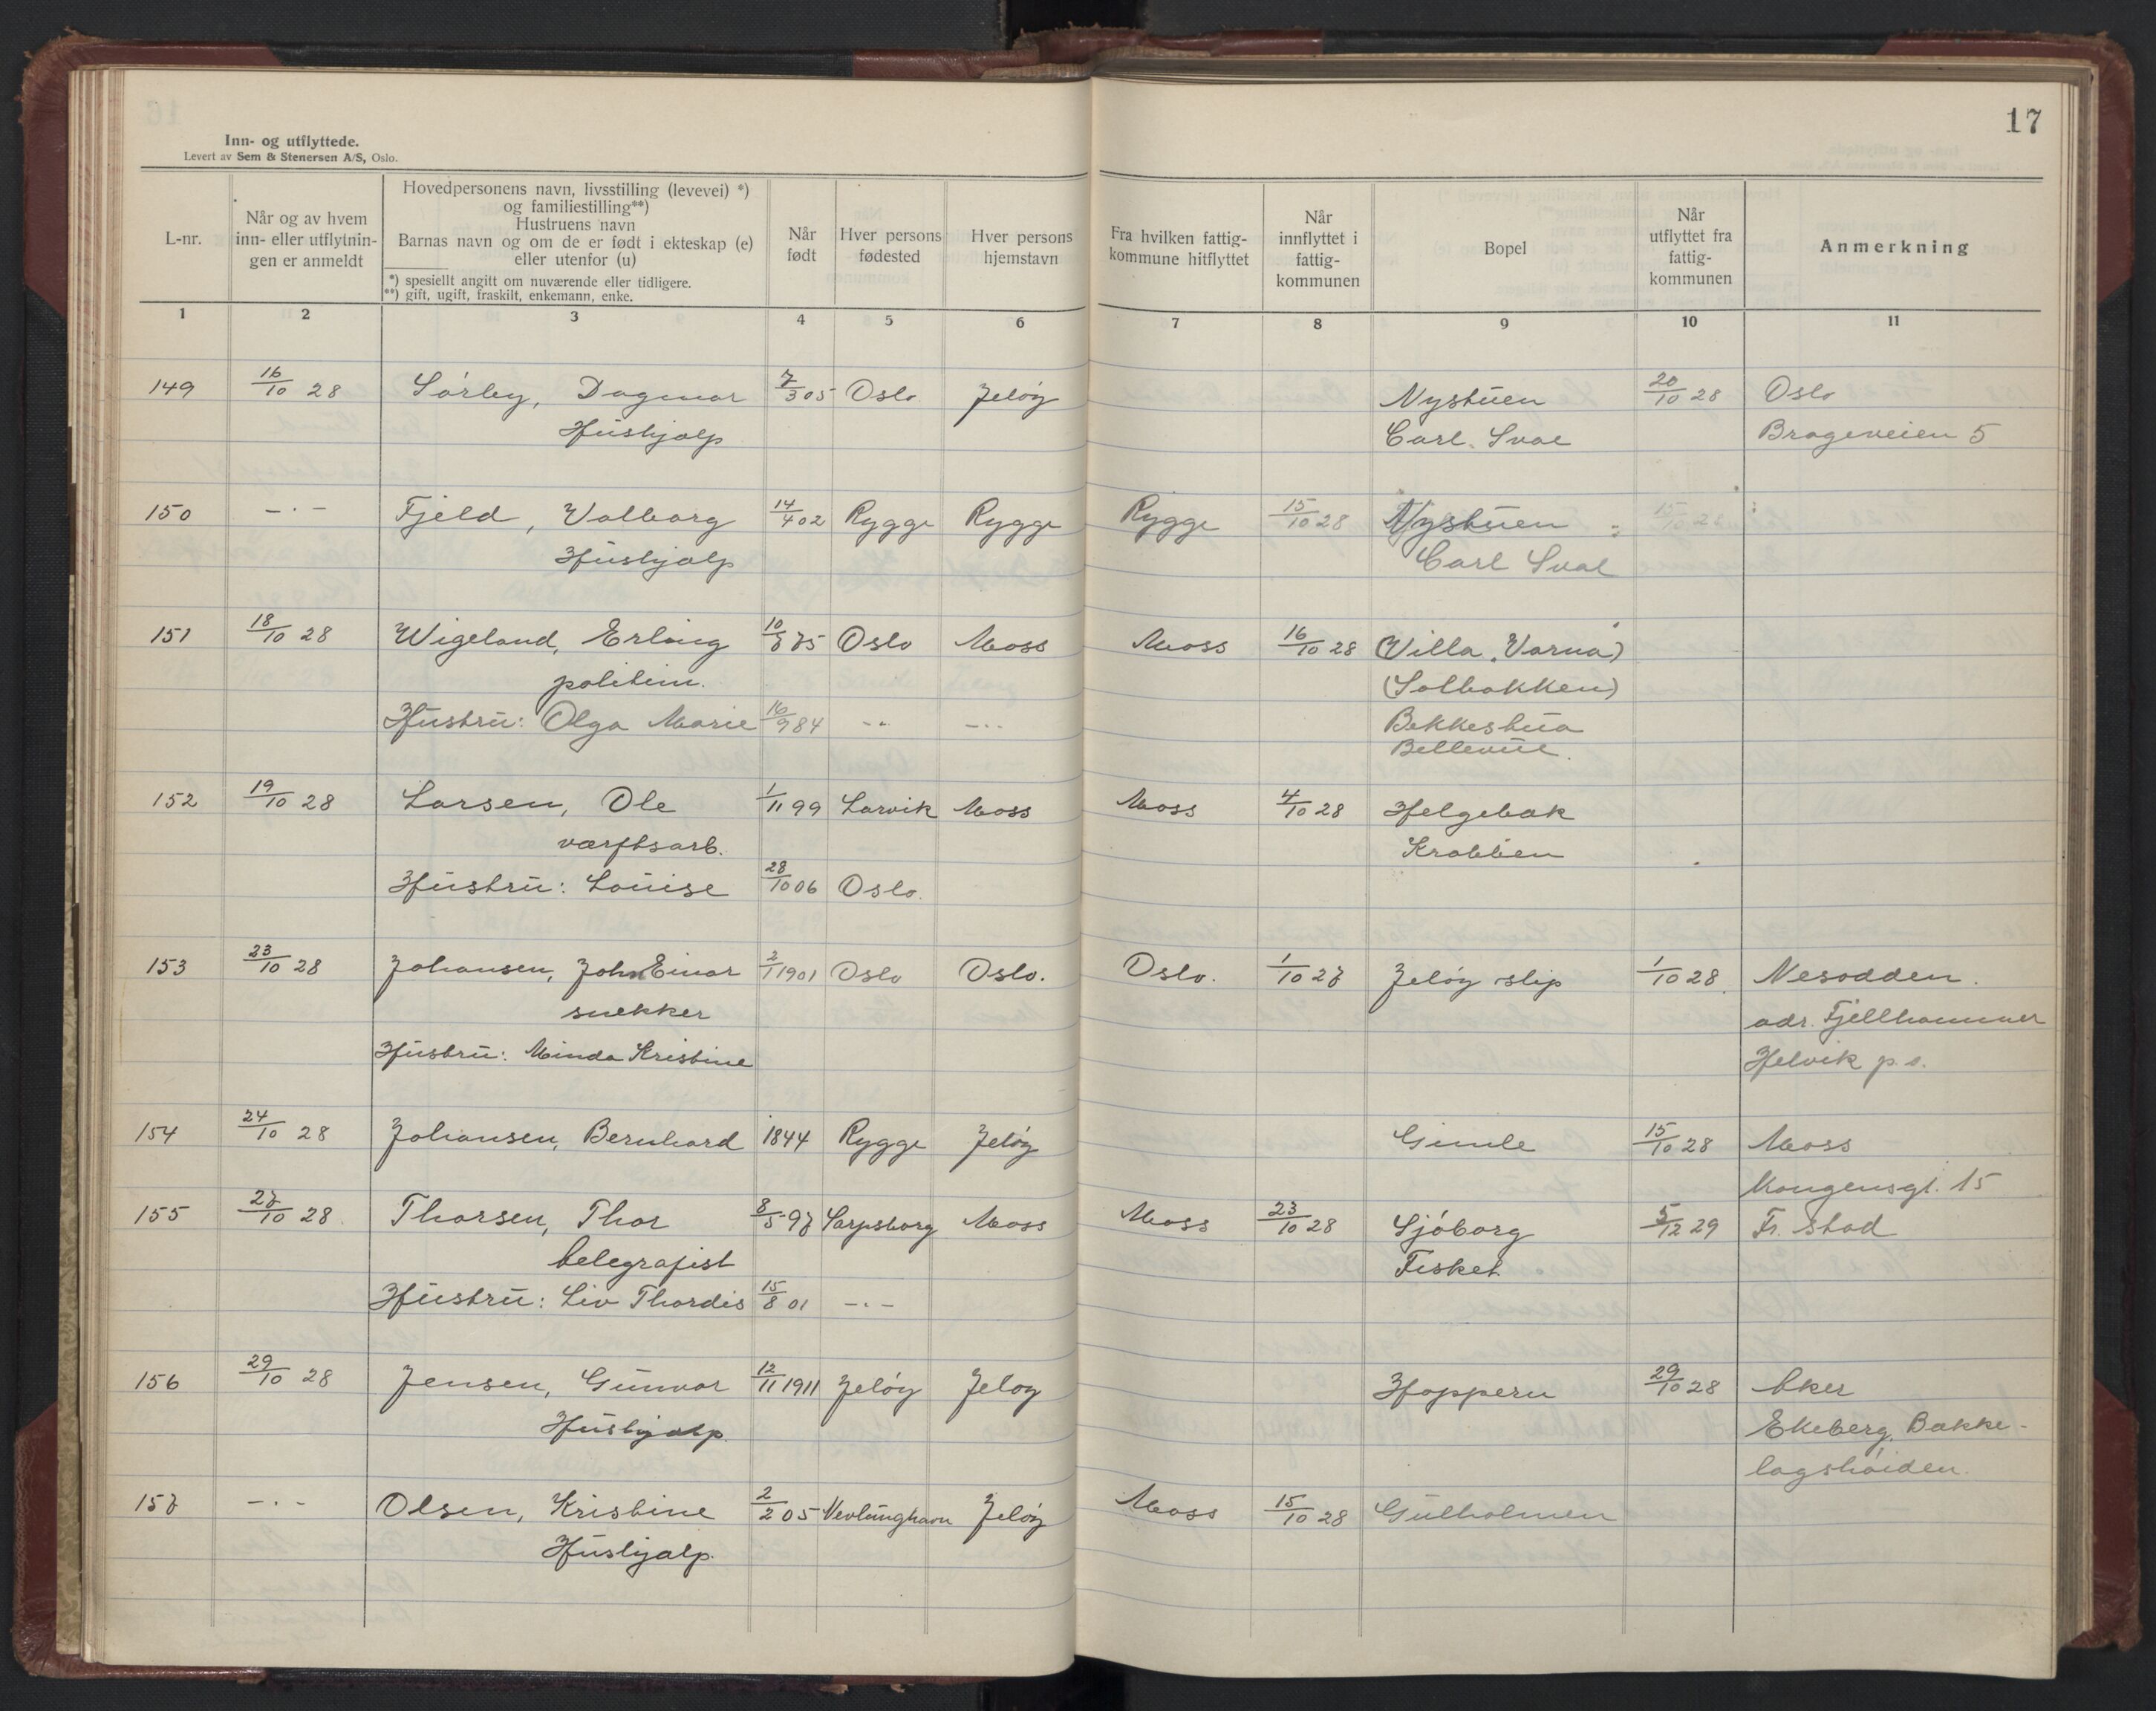 17
Inn- og utflyttede.
Levert av Sem & Stenersen A/S, Oslo.
L-nr.
Når og av hvem
inn- eller utflytnin-
gen er anmeldt
Hovedpersonens navn, livsstilling (levevei) *)
og familiestilling**)
Hustruens navn
Barnas navn og om de er født i ekteskap (e)
eller utenfor (u)
*) spesiellt angitt om nuværende eller tidligere.
**) gift, ugift, fraskilt, enkemann, enke.
Når
født
Hver persons
fødested
Hver persons
hjemstavn
Fra hvilken fattig-
kommune hitflyttet
Når
innflyttet i
fattig-
kommunen
Bopel
Når
utflyttet fra
fattig-
kommunen
Anmerkning
1 2 3 4 5 6 7 8 9 10 11
149 16/10 28 Sörby, Dagmar 7/3 05 Oslo Jelöy Nystuen 20/10 28 Oslo
Hushjalp Carl Sval Brageveien 5
150 -·- Fjeld, Valborg 14/4 02 Rygge Rygge Rygge 15/10 28 Nystuen
Hushjalp Carl Sval
151 18/10 28 Wigeland, Erling 10/7 75 Oslo Moss Moss 16/10 28 (Villa Varna)
politim. (Solbakken)
Hustru: Olga Marie 16/9 84 -·- -·- Bekkestua
Bellevue.
152 19/10 28 Larsen, Ole 1/11 99 Larvik Moss Moss 4/10 28 Helgebak
værftsarb. Krabben
Hustru: Louise 28/10 06 Oslo.
153 23/10 28 Johansen, John Einar 2/1 1901 Oslo Oslo. Oslo. 1/10 27 Jelöy slip 1/10 28 Nesodden.
snekker adr. Fjellhammer
Hustru: Minda Kristine Helvik p.s.
154 24/10 28 Johansen, Bernhard 1844 Rygge Jelöy Gimle 15/10 28 Moss
Kongensgt. 15
155 27/10 28 Thorsen, Thor 8/5 97 Sarpsborg Moss Moss 23/10 28 Sjöborg 5/12 29 Fr. stad
telegrafist Fisket
Hustru: Liv Thordis 15/8 01 -·-
156 29/10 28 Jensen, Gunvor 12/11 1911 Jelöy Jeloy Hoppern 29/10 28 Aker
Hushjalp. Ekeberg, Bække-
lagshöiden.
157 -·- Olsen, Kristine 2/2 05 Nevlunghavn Jelöy Moss 15/10 28 Gulholmen
Hushjalp.